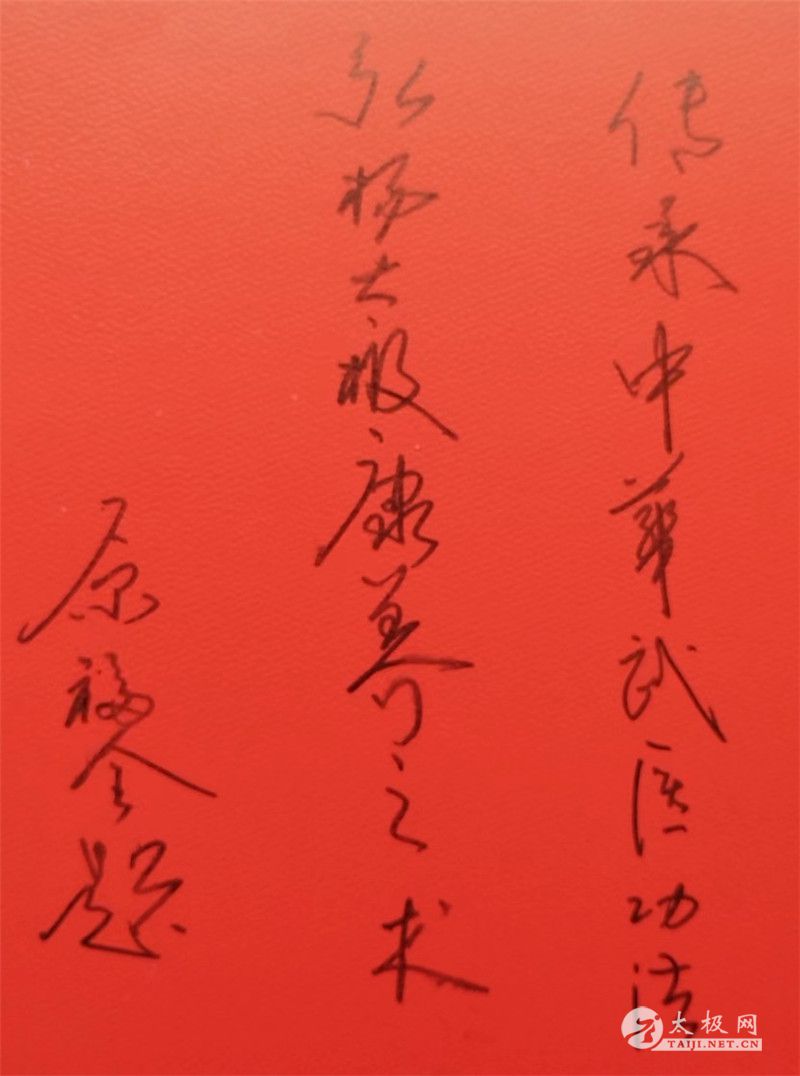 传承中华武医功法
弘杨太极康养之术
原福全题
太极网
TAIJI.NET.CN